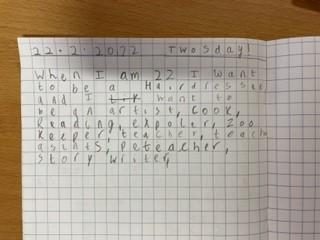 22.2.2022 Twosday!
When I am 22 I want
to be a Hairdresser
and I want to
be an artist, cook,
Reading, expoler, zoo
keeper, teacher, teach
asints, Peteacher,
story writer,